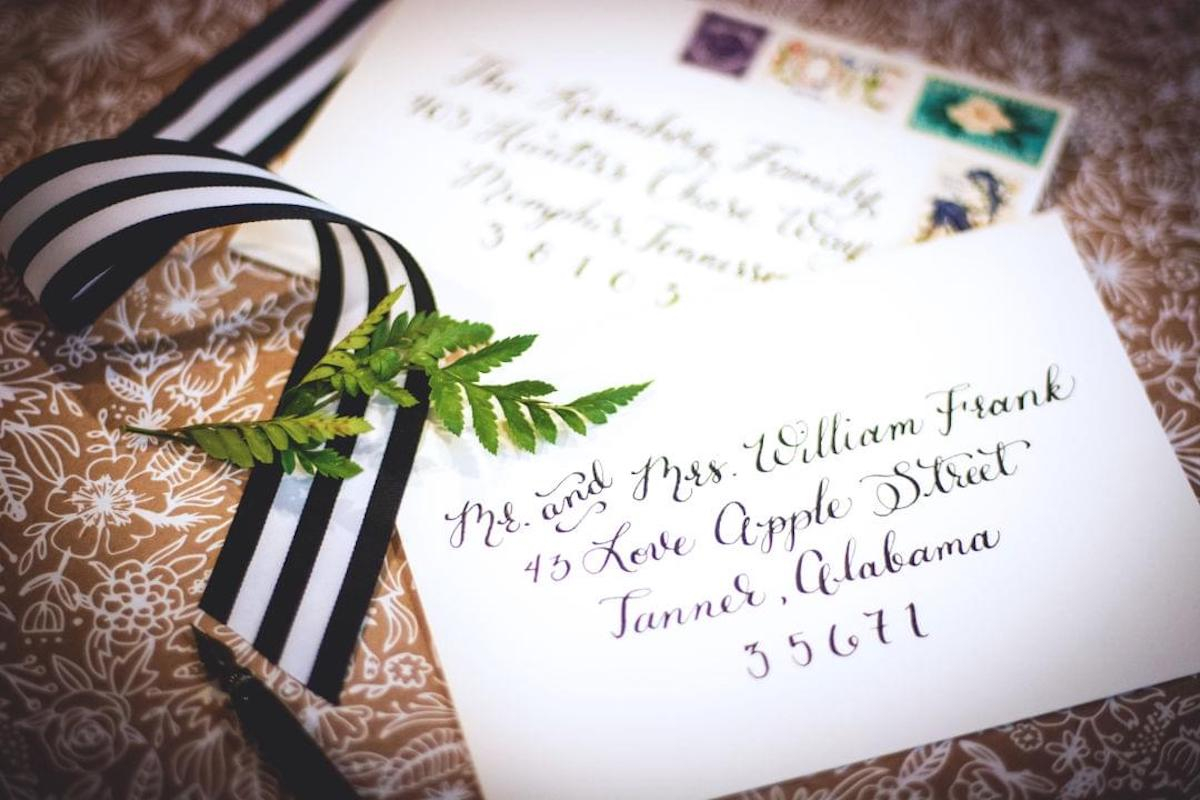 The Rosenberg Family
463 Hunters Chase Way
Memphis, Tennessee
38103
Mr. and Mrs. William Frank
43 Love Apple Street
Tanner, Alabama
35671